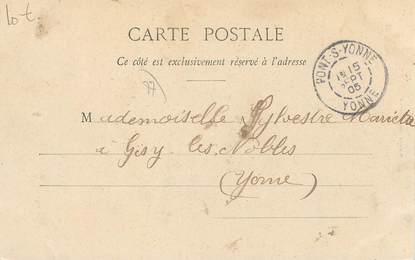 lot.
CARTE POSTALE
Ce côté est exclusivement réservé à l'adresse
PONT-S-YONNE
15
SEPT
05
YONNE
Mademoiselle Sylvestre Marietta
à Gisy les Nobles
(Yonne)